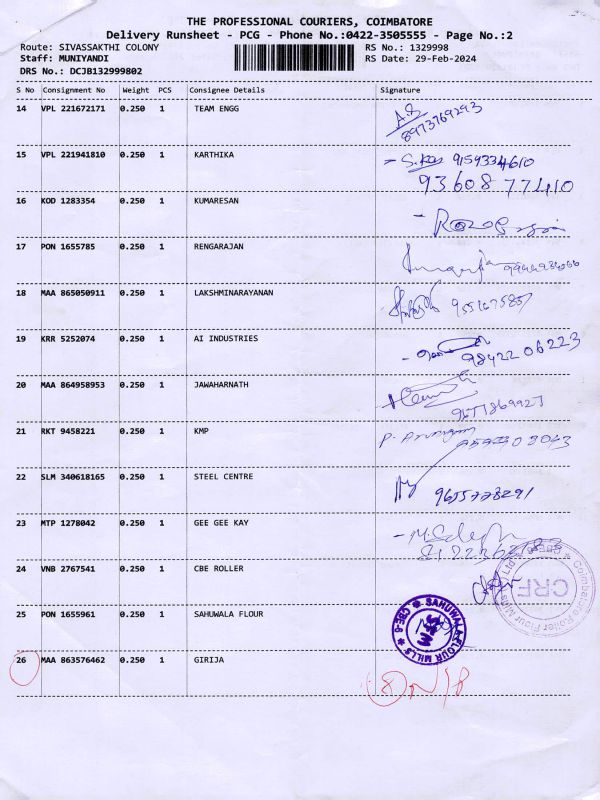 THE PROFESSIONAL COURIERS, COIMBATORE
Delivery Runsheet - PCG - Phone No.:0422-3505555 - Page No.:2
Route: SIVASSAKTHI COLONY RS No.: 1329998
Staff: MUNIYANDI RS Date: 29-Feb-2024
DRS No.: DCJB132999802
S No Consignment No Weight PCS Consignee Details Signature
14 VPL 221672171 0.250 1 TEAM ENGG
8973769293
15 VPL 221941810 0.250 1 KARTHIKA
9159334610
93608 77410
16 KOD 1283354 0.250 1 KUMARESAN
17 PON 1655785 0.250 1 RENGARAJAN
18 MAA 865050911 0.250 1 LAKSHMINARAYANAN
19 KRR 5252074 0.250 1 AI INDUSTRIES
98422 06223
20 MAA 864958953 0.250 1 JAWAHARNATH
21 RKT 9458221 0.250 1 KMP
22 SLM 340618165 0.250 1 STEEL CENTRE
23 MTP 1278042 0.250 1 GEE GEE KAY
24 VNB 2767541 0.250 1 CBE ROLLER
Coimbatore Roller Flour Mills Ltd
CRF
25 PON 1655961 0.250 1 SAHUWALA FLOUR
SAHUWALA FLOUR MILLS
CBE-6
SFM
26 MAA 863576462 0.250 1 GIRIJA